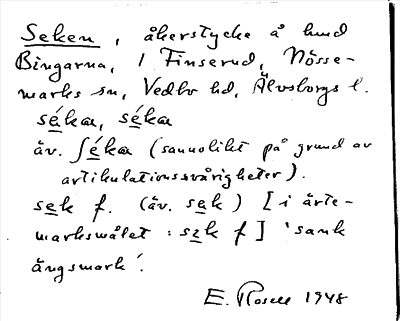 Seken, åkerstycke å hmd
Bingarna, 1 Finserud, Nösse-
marks sn, Vedbo hd, Älvsborgs l.
séka, séka
äv. ʃéka (sannolikt på grund av
artikulationssvårigheter).
sek f. (äv. sak) [i ärte-
marksmålet: szk f] 'sank
ängsmark'.
E. Rosell 1948